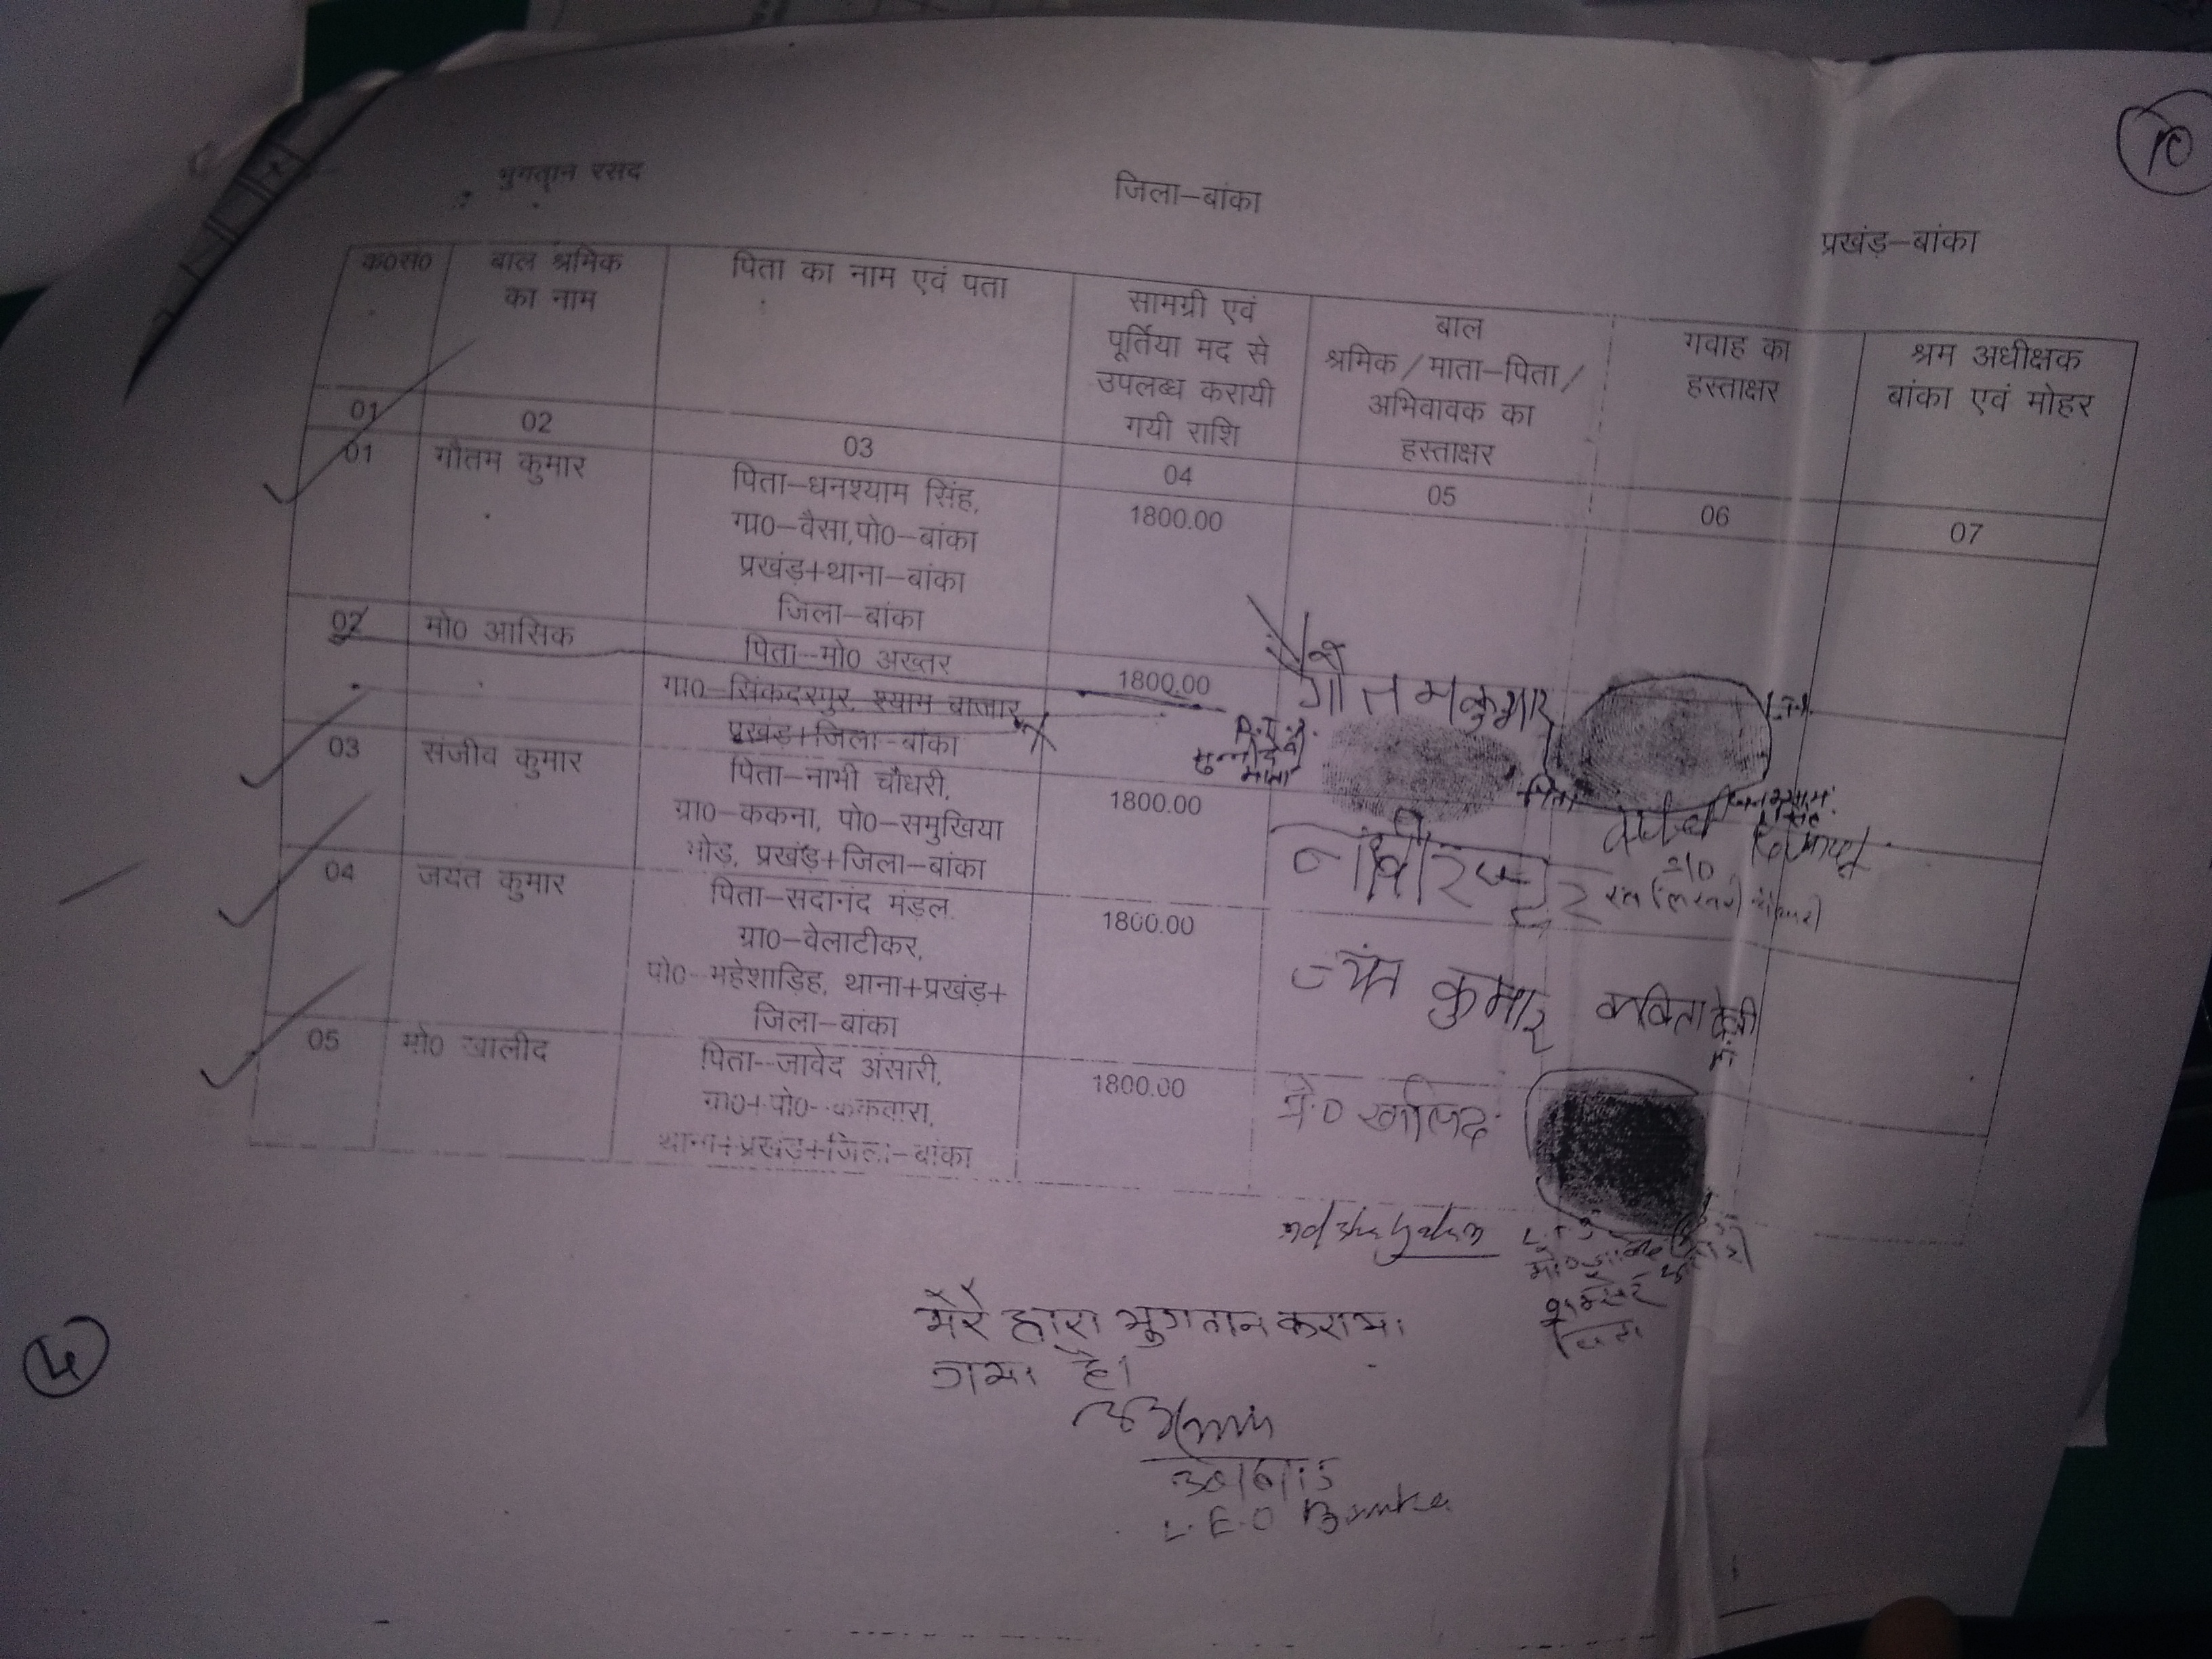 भुगतान रसद
जिला–बांका
10
प्रखंड़–बांका
क0सं0
बाल श्रमिक
का नाम
पिता का नाम एवं पता
सामग्री एवं
पूर्तिया मद से
उपलब्ध करायी
गयी राशि
बाल
श्रमिक/माता–पिता/
अभिवावक का
हस्ताक्षर
गवाह का
हस्ताक्षर
श्रम अधीक्षक
बांका एवं मोहर
01
02
03
04
05
06
07
01
गौतम कुमार
पिता–धनश्याम सिंह,
गा0–वैसा,पो0–बांका
प्रखंड़+थाना–बांका
जिला–बांका
1800.00
गौतम कुमार
02
मो0 आसिक
पिता–मो0 अख्तर
गा0–सिंकदरपुर, श्याम बाजार,
प्रखंड़+जिला–बांका
1800.00
03
संजीव कुमार
पिता–नाभी चौधरी,
ग्रा0–ककना, पो0–समुखिया
मोड़, प्रखंड़+जिला–बांका
1800.00
04
जयंत कुमार
पिता–सदानंद मंड़ल
ग्रा0–वेलाटीकर,
पो0–महेशाड़िह, थाना+प्रखंड़+
जिला–बांका
1800.00
कुमार
कविता देवी
05
मो0 खालीद
पिता–जावेद अंसारी,
ग्रा0+पो0–ककवारा,
थाना+प्रखंड़+जिला–बांका
1800.00
मो0 खालिद
मेरे द्वारा भुगतान कराया
गया है।
L.E.O Banka